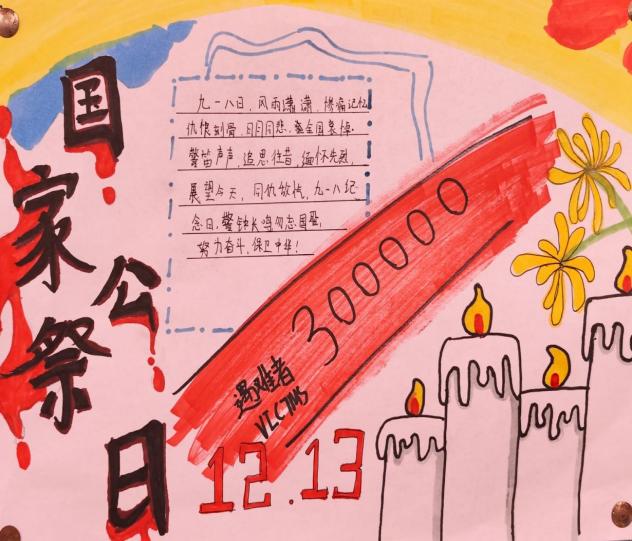 国家公祭日
九一八日,风雨潇潇,惨痛记忆
仇恨刻骨,日月同悲,举全国哀悼。
警笛声声,追思往昔,缅怀先烈,
展望今天,同仇敌忾,九一八纪
念日,警钟长鸣勿忘国耻,
努力奋斗,保卫中华!
300000
遇难者
VLCTMS
12.13